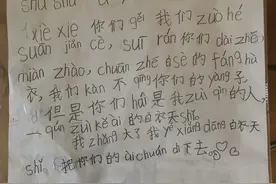 xiè xie 你们 gěi 我们 zuò hé
suān jiǎn cè, suī rán 你们 dài zhe
miàn zhào, chuān zhe 白 sè 的 fáng hù
衣, 我们 kàn 不 qīng 你们的 yàng 子,
但是你们 hái 是我 zuì 的人,
一 qún zuì kě ài 的白衣天 shǐ。
我 zhǎng 大了我 yě xiǎng dāng 白衣天
shǐ, 把你们的 ài chuán 下去